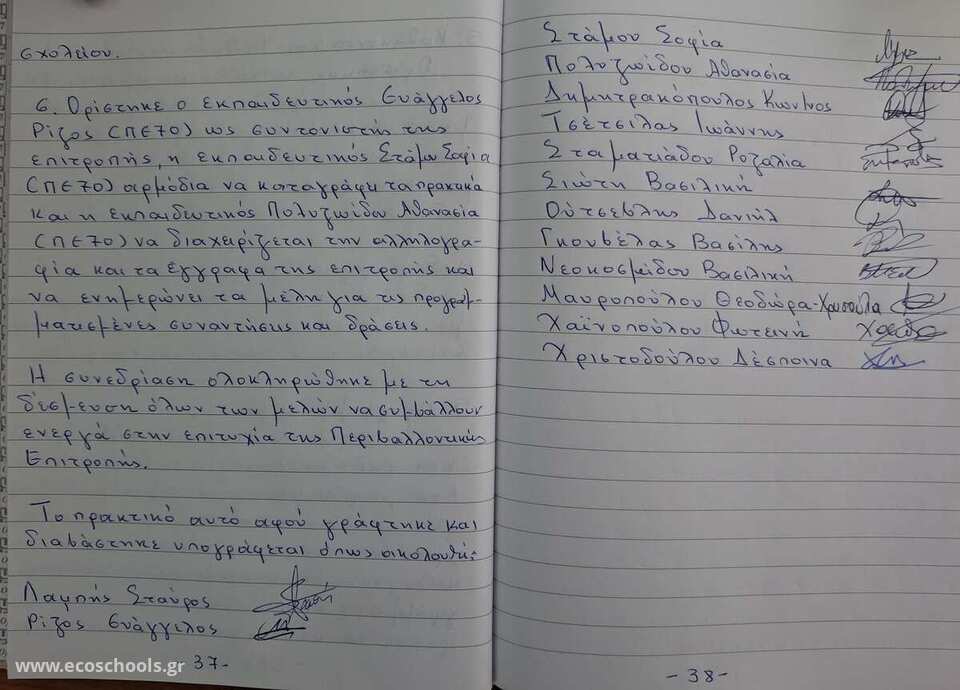 σχολείου.
6. Ορίστηκε ο εκπαιδευτικός Ευάγγελος
Ρίζος (ΠΕ70) ως συντονιστής της
επιτροπής, η εκπαιδευτικός Στάμου Σοφία
(ΠΕ70) αρμόδια να καταγράφει τα πρακτικά
και η εκπαιδευτικός Πολυζωίδου Αθανασία
(ΠΕ70) να διαχειρίζεται την αλληλογρα-
φία και τα έγγραφα της επιτροπής και
να ενημερώνει τα μέλη για τις προγραμ-
ματισμένες συναντήσεις και δράσεις.
Η συνεδρίαση ολοκληρώθηκε με τη
δέσμευση όλων των μελών να συμβάλλουν
ενεργά στην επιτυχία της Περιβαλλοντικής
Επιτροπής.
Το πρακτικό αυτό αφού γράφτηκε και
διαβάστηκε υπογράφεται όπως ακολουθεί:
Λαμπής Σταύρος
Ρίζος Ευάγγελος
37-
www.ecoschools.gr
Στάμου Σοφία
Πολυζωίδου Αθανασία
Δημητρακόπουλος Κων/νος
Τσέτσιλας Ιωάννης
Σταματιάδου Ροζαλία
Σιώτη Βασιλική
Ούτσεβλης Δανιήλ
Γκουβέλας Βασίλης
Νεοκοσμίδου Βασιλική
Μαυροπούλου Θεοδώρα-Χρυσούλα
Χαϊνοπούλου Φωτεινή
Χριστοδούλου Δέσποινα
- 38 -